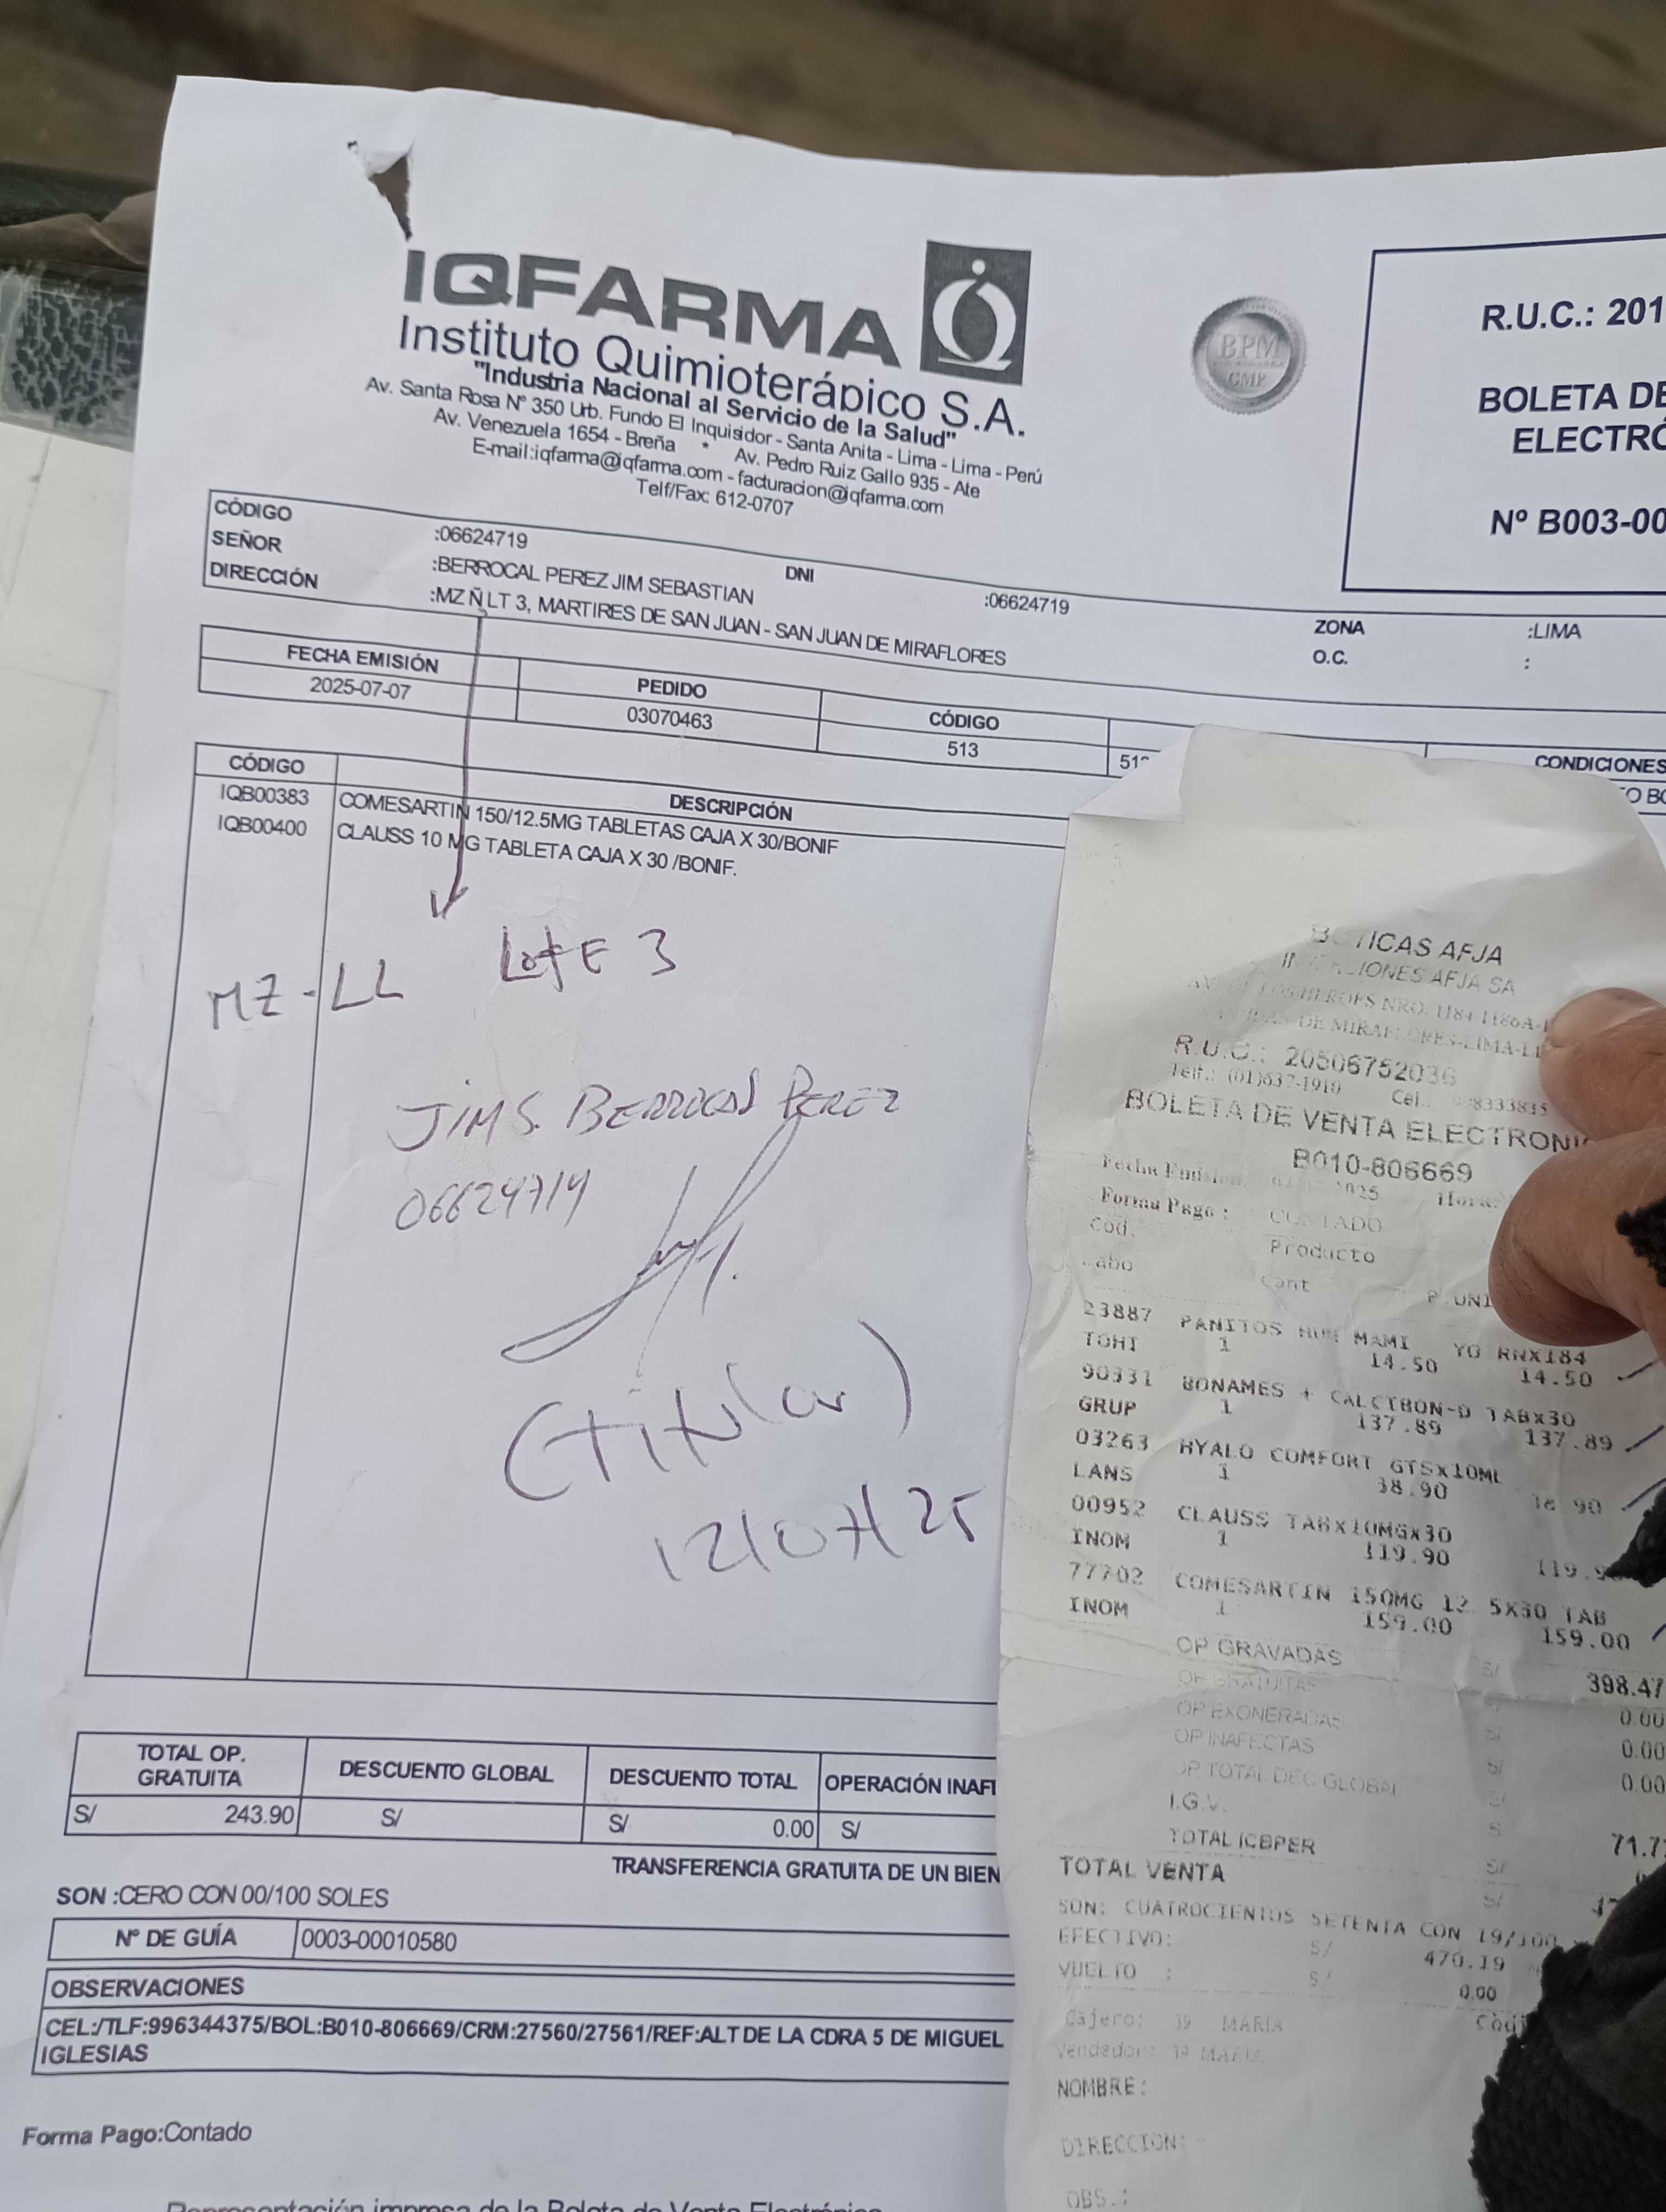 IQFARMA
Instituto Quimioterápico S.A.
"Industria Nacional al Servicio de la Salud"
Av. Santa Rosa Nº 350 Urb. Fundo El Inquisidor - Santa Anita - Lima - Lima - Perú
Av. Venezuela 1654 - Breña * Av. Pedro Ruiz Gallo 935 - Ate
E-mail:iqfarma@iqfarma.com - facturacion@iqfarma.com
Telf/Fax: 612-0707
BPM
GMP
R.U.C.: 201
BOLETA DE
ELECTRÓ
Nº B003-00
CÓDIGO :06624719
SEÑOR :BERROCAL PEREZ JIM SEBASTIAN DNI :06624719
DIRECCIÓN :MZ Ñ LT 3, MARTIRES DE SAN JUAN - SAN JUAN DE MIRAFLORES
ZONA :LIMA
O.C. :
FECHA EMISIÓN PEDIDO CÓDIGO CONDICIONES
2025-07-07 03070463 513
CÓDIGO DESCRIPCIÓN
IQB00383 COMESARTIN 150/12.5MG TABLETAS CAJA X 30/BONIF
IQB00400 CLAUSS 10 MG TABLETA CAJA X 30 /BONIF.
MZ-LL LotE 3
JIM S. BERROCAL PEREZ
06624719
(titular)
12/07/25
TOTAL OP. GRATUITA DESCUENTO GLOBAL DESCUENTO TOTAL OPERACIÓN INAF
S/ 243.90 S/ S/ 0.00 S/
TRANSFERENCIA GRATUITA DE UN BIEN
SON :CERO CON 00/100 SOLES
Nº DE GUÍA 0003-00010580
OBSERVACIONES
CEL:/TLF:996344375/BOL:B010-806669/CRM:27560/27561/REF:ALT DE LA CDRA 5 DE MIGUEL
IGLESIAS
Forma Pago:Contado
Representación impresa de la Boleta de Venta Electrónica
BOTICAS AFJA
AFJA SA
LOS HEROES NRO. 1184-1186A-
DE MIRAFLORES-LIMA-LI
R.U.C.: 20506752036
Telf.: (01)637-1910 Cel.: 8333835
BOLETA DE VENTA ELECTRONI
B010-806669
Fecha Emision 2025 Hora:
Forma Pago : CONTADO
Cod. Producto
abo Cant P.UNI
23887 PANITOS HUM MAMI YO RNX184
TOHI 1 14.50 14.50
90331 BONAMES + CALCIBON-D TABX30
GRUP 1 137.89 137.89
03263 HYALO COMFORT GTSX10ML
LANS 1 38.90 38.90
00952 CLAUSS TABX10MGX30
INOM 1 119.90 119.9
77702 COMESARTIN 150MG 12.5X30 TAB
INOM 1 159.00 159.00
OP GRAVADAS S/ 398.47
OP GRATUITAS S/ 0.00
OP EXONERADAS S/ 0.00
OP INAFECTAS S/ 0.00
OP TOTAL DEC GLOBAL S/
I.G.V. S/ 71.7
TOTAL ICBPER S/
TOTAL VENTA S/ 47
SON: CUATROCIENTOS SETENTA CON 19/100
EFECTIVO: S/ 470.19
VUELTO : S/ 0.00
Cajero: 39 MARIA
Vendedor: 39 MARIA
NOMBRE:
DIRECCION:
OBS.: